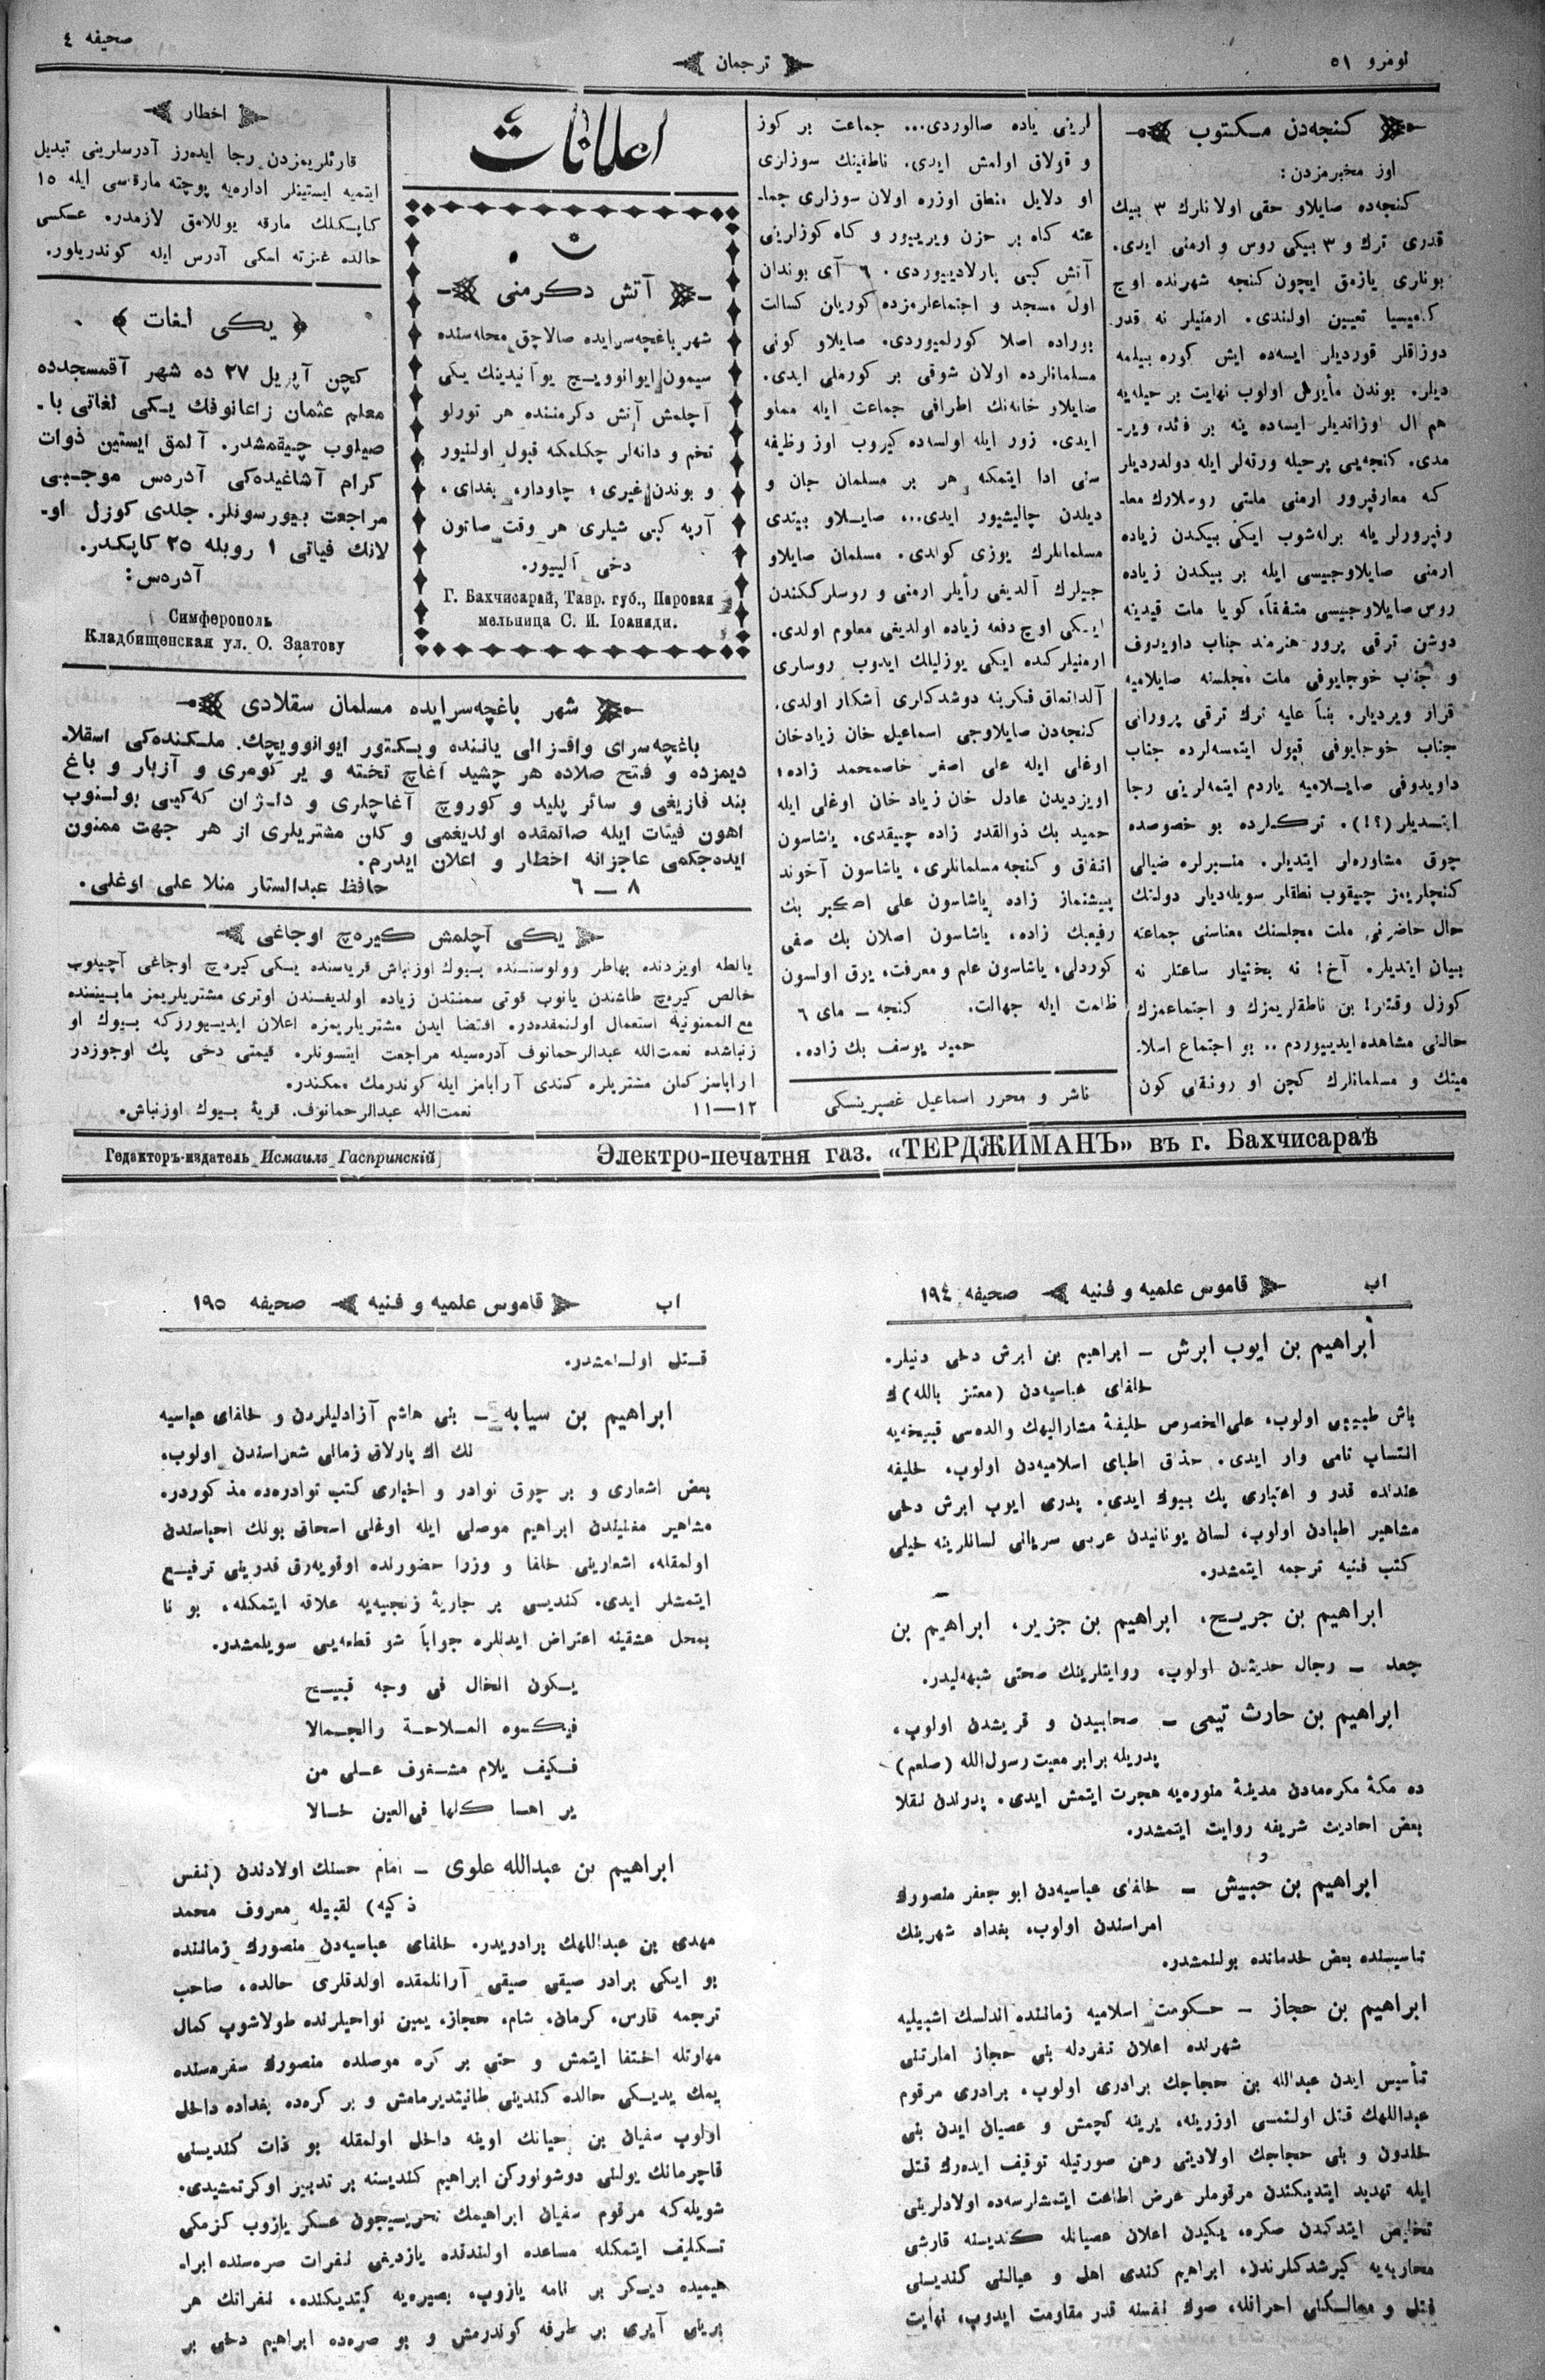 نومرو ٥١
ترجمان
صحيفه ٤
كنجه‌دن مكتوب
اوز مخبرمزدن:
كنجه‌ده صايلاو حقى اولانلرك ٣ بيك
قدرى ترك و ٣ بيكى روس و ارمنى ايدى.
بونلرى يازمق ايچون كنجه شهرنده اوچ
كاميسيا تعيين اولندى. ارمنيلر نه قدر
دوزاقلر قورديلر ايسه‌ده ايش كوره بيلمه
ديلر. بوندن مأيوس اولوب نهايت بر حيله‌يه
هم ال اوزاتديلر ايسه‌ده ينه بر فائده وير-
مدى. كنجه‌يى پر حيله ورقه‌لر ايله دولدرديلر
كه معارفپرور ارمنى ملتى روسلارك معا-
رفپرورلر يله برله‌شوب ايكى بيكدن زياده
ارمنى صايلاوجيسى ايله بر بيكدن زياده
روس صايلاوجيسى متفقاً، كويا ملت قيدينه
دوشن ترقى پرور هنرمند جناب داويدوف
و جناب خوجايوفى ملت مجلسنه صايلاميه
قرار ويرديلر. بناً عليه ترك ترقى پرورانى
جناب خوجايوفى قبول ايتمسه‌لرده جناب
داويدوفى صايلاميه ياردم ايتمه‌لرينى رجا
ايتديلر(؟!). تركلرده بو خصوصده
چوق مشاوره‌لر ايتديلر. منبرلره ضيالى
كنچلريمز چيقوب نطقلر سويله‌ديلر دولتك
حال حاضرنى ملت مجلسنك معناسنى جماعته
بيان ايتديلر. آخ! نه بختيار ساعتلر نه
كوزل وقتلر! بن ناطقلريمزك و اجتماعمزك
حالنى مشاهده ايدييوردم .. بو اجتماع اسلا-
ميتك و مسلمانلرك كچن او رونقلى كون
لرينى ياده صالوردى... جماعت بر كوز
و قولاق اولمش ايدى. ناطقينك سوزلرى
او دلايل منطق اوزره اولان سوزلرى جما-
عته كاه بر حزن ويرييور و كاه كوزلرينى
آتش كبى پارلادييوردى. ٦ آى بوندان
اول مسجد و اجتماعلرمزده كوريلان كسالت
بوراده اصلا كورلميوردى. صايلاو كونى
مسلمانلرده اولان شوقى بر كورملى ايدى.
صايلاو خانه‌نك اطرافى جماعت ايله مملو
ايدى. زور ايله اولسه‌ده كيروب اوز وظيفه
سنى ادا ايتمكه هر بر مسلمان جان و
ديلدن چاليشيور ايدى... صايلاو بيتدى
مسلمانلرك يوزى كولدى. مسلمان صايلاو
جيلرك آلديغى رأيلر ارمنى و روسلركندن
ايكى اوچ دفعه زياده اولديغى معلوم اولدى.
ارمنيلركده ايكى يوزليلك ايدوب روسلرى
آلداتماق فكرينه دوشدكلرى آشكار اولدى.
كنجه‌دن صايلاوجى اسماعيل خان زيادخان
اوغلى ايله على اصغر خاصمحمد زاده؛
اويزديدن عادل خان زياد خان اوغلى ايله
حميد بك ذوالقدر زاده چيقدى. ياشاسون
اتفاق و كنجه مسلمانلرى، ياشاسون آخوند
پيشنماز زاده ياشاسون على اكبر بك
رفيعبك زاده، ياشاسون اصلان بك صفى
كوردلى، ياشاسون علم و معرفت، يرق اولسون
ظلمت ايله جهالت. كنجه — ماى ٦
حميد يوسف بك زاده.
ناشر و محرر اسماعيل غصپرينسكى
اعلانات
آتش دكرمنى
شهر باغچه‌سرايده صالاچق محله‌سنده
سيمون ايوانوويچ يوآنيدينك يكى
آچلمش آتش دكرمننده هر تورلو
تخم و دانه‌لر چكلمكه قبول اولنيور
و بوندن غيرى؛ چاودار، بغداى،
آرپه كبى شيلرى هر وقت صاتون
دخى آلييور.
Г. Бахчисарай, Тавр. губ., Паровая
мельница С. И. Іоаниди.
اخطار
قارئلريمزدن رجا ايده‌رز آدرسلرينى تبديل
ايتميه ايستينلر اداره‌يه پوچته مارقه‌سى ايله ١٥
كاپكلك مارقه يوللامق لازمدره عكسى
حالده غزته اسكى آدرس ايله كوندريلور.
يكى لغات
كچن آپريل ٢٧ ده شهر آقمسجدده
معلم عثمان زاعاتوفك يكى لغاتى با-
صيلوب چيقمشدر. آلمق ايستين ذوات
كرام آشاغيده‌كى آدرس موجبى
مراجعت بيورسونلر. جلدى كوزل او-
لانك فياتى ١ روبله ٢٥ كاپكدر.
آدرس:
Симферополь
Кладбищенская ул. О. Заатову
شهر باغچه‌سرايده مسلمان سقلادى
باغچه‌سراى واقزالى ياننده ويكتور ايوانوويچك ملكنده‌كى اسقلا-
ديمزده و فتح صلاده هر چشيد آغاچ تخته و ير كومرى و آزبار و باغ
بند قازيغى و سائر پليد و كوروچ آغاچلرى و دلژان كه‌كيى بولنوب
اهون فيئات ايله صاتمقده اولديغمى و كلن مشتريلرى از هر جهت ممنون
ايده‌جكمى عاجزانه اخطار و اعلان ايدرم.
٨—٦ حافظ عبدالستار منلا على اوغلى.
يكى آچلمش كيره‌چ اوجاغى
يالطه اويزدنده بهاطر وولوستنده بيوك اوزنباش قريه‌سنده يكى كيره‌چ اوجاغى آچيلوب
خالص كيره‌چ طاشندن يانوب قوتى سمنتدن زياده اولديغندن اوترى مشتريلريمز مابيننده
مع الممنونية استعمال اولنمقده‌دره اقتضا ايدن مشتريلريمزه اعلان ايدييورزكه بيوك او
زنباشده نعمت‌الله عبدالرحمانوف آدره‌سيله مراجعت ايتسونلر. قيمتى دخى پك اوجوزدر
آراباسز كلان مشتريلره كندى آرابامز ايله كوندرمك ممكندر.
١٢—١١ نعمت‌الله عبدالرحمانوف. قريۀ بيوك اوزنباش.
Редакторъ-издатель Исмаилъ Гаспринскій
Электро-печатня газ. «ТЕРДЖИМАНЪ» въ г. Бахчисараѣ
اب قاموس علميه و فنيه صحيفه ١٩٤
ابراهيم بن ايوب ابرش — ابراهيم بن ابرش دخى دنيلر.
خلفاى عباسيه‌دن (معتز بالله)ك
باش طبيبى اولوب، على‌الخصوص خليفۀ مشاراليهك والده‌سى قبيحه‌يه
انتساب تامى وار ايدى. حذق اطباى اسلاميه‌دن اولوب، خليفه
عندنده قدر و اعتبارى پك بيوك ايدى. پدرى ايوب ابرش دخى
مشاهير اطبادن اولوب، لسان يونانيدن عربى سريانى لسانلرينه خيلى
كتب فنيه ترجمه ايتمشدر.
ابراهيم بن جريح، ابراهيم بن جزير، ابراهيم بن
جعد — رجال حديثدن اولوب، روايتلرينك صحتى شبهه‌ليدر.
ابراهيم بن حارث تيمى — صحابيدن و قريشدن اولوب،
پدريله برابر معيت رسول‌الله (صلعم)
ده مكۀ مكرمه‌دن مدينۀ منوره‌يه هجرت ايتمش ايدى. پدرندن نقلا
بعض احاديث شريفه روايت ايتمشدر.
ابراهيم بن حبيش — خلفاى عباسيه‌دن ابو جعفر منصورك
امراسندن اولوب، بغداد شهرينك
تاسيسنده بعض خدماتده بولنمشدر.
ابراهيم بن حجاز — حكومت اسلاميه زماننده اندلسك اشبيليه
شهرنده اعلان تفردله بنى حجاز امارتنى
تأسيس ايدن عبدالله بن حجاجك برادرى اولوب، برادرى مرقوم
عبداللهك قتل اولنمسى اوزرينه، يرينه كچمش و عصيان ايدن بنى
خلدون و بنى حجاجك اولادينى رهن صورتيله توقيف ايده‌رك قتل
ايله تهديد ايتديكندن مرقوملر عرض اطاعت ايتمشلرسه‌ده اولادلرينى
تخليص ايتدكدن صكره، يكيدن اعلان عصيانله كنديسنه قارشى
محاربه‌يه كيرشدكلرندن، ابراهيم كندى اهل و عيالنى كنديسى
قتل و معالسكنى احراقله، صوك نفسنه قدر مقاومت ايدوب، نهايت
اب قاموس علميه و فنيه صحيفه ١٩٥
قتل اولنمشدر.
ابراهيم بن سيابه — بنى هاشم آزادليلردن و خلفاى عباسيه
نك اك پارلاق زمانى شعراسندن اولوب،
بعض اشعارى و بر چوق نوادر و اخبارى كتب نوادره‌ده مذكوردر.
مشاهير مغنيندن ابراهيم موصلى ايله اوغلى اسحاق بونك احباسندن
اولمقله، اشعارينى خلفا و وزرا حضورلنده اوقويه‌رق قدرينى ترفيع
ايتمشلر ايدى. كنديسى بر جاريۀ زنجييه‌يه علاقه ايتمكله، بو نا
بمحل عشقينه اعتراض ايدنلره جواباً شو قطعه‌يى سويلمشدر.
يكون الخال فى وجه قبيح
فيكسوه الملاحة والجمالا
فكيف يلام مشغوف على من
يراها كلها فى‌العين خالا
ابراهيم بن عبدالله علوى — امام حسنك اولادندن (نفس
ذكيه) لقبيله معروف محمد
مهدى بن عبداللهك برادريدر. خلفاى عباسيه‌دن منصورك زماننده
بو ايكى برادر صيقى صيقى آرانلمقده اولدقلرى حالده، صاحب
ترجمه فارس، كرمان، شام، حجاز، يمين نواحيلرنده طولاشوب كمال
مهارتله اختفا ايتمش و حتى بر كره موصلده منصورك سفره‌سنده
يمك يديكى حالده كندينى طانيتديرمامش و بر كره‌ده بغداده داخل
اولوب سفيان بن حيانك اوينه داخل اولمقله بو ذات كنديسنى
قاچرمانك يولنى دوشونوركن ابراهيم كنديسنه بر تدبير اوكرتمشيدى.
شويله‌كه مرقوم سفيان ابراهيمك تحريسيچون عسكر يازوب كزمكى
تكليف ايتمكله مساعده اولندقده يازديغى نفرات صره‌سنده ابرا-
هيميده ديكر بر نامه يازوب، بصيره‌يه كيتديكنده، نفراتك هر
برينى آيرى بر طرفه كوندرمش و بو صره‌ده ابراهيم دخى بر